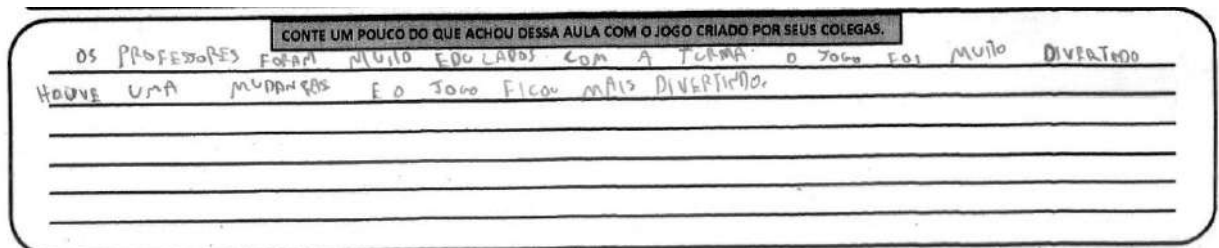 CONTE UM POUCO DO QUE ACHOU DESSA AULA COM O JOGO CRIADO POR SEUS COLEGAS.
OS PROFESSORES FORAM MUITO EDUCADOS COM A TURMA. O JOGO FOI MUITO DIVERTIDO
HOUVE UMA MUDANÇAS E O JOGO FICOU MAIS DIVERTIDO.